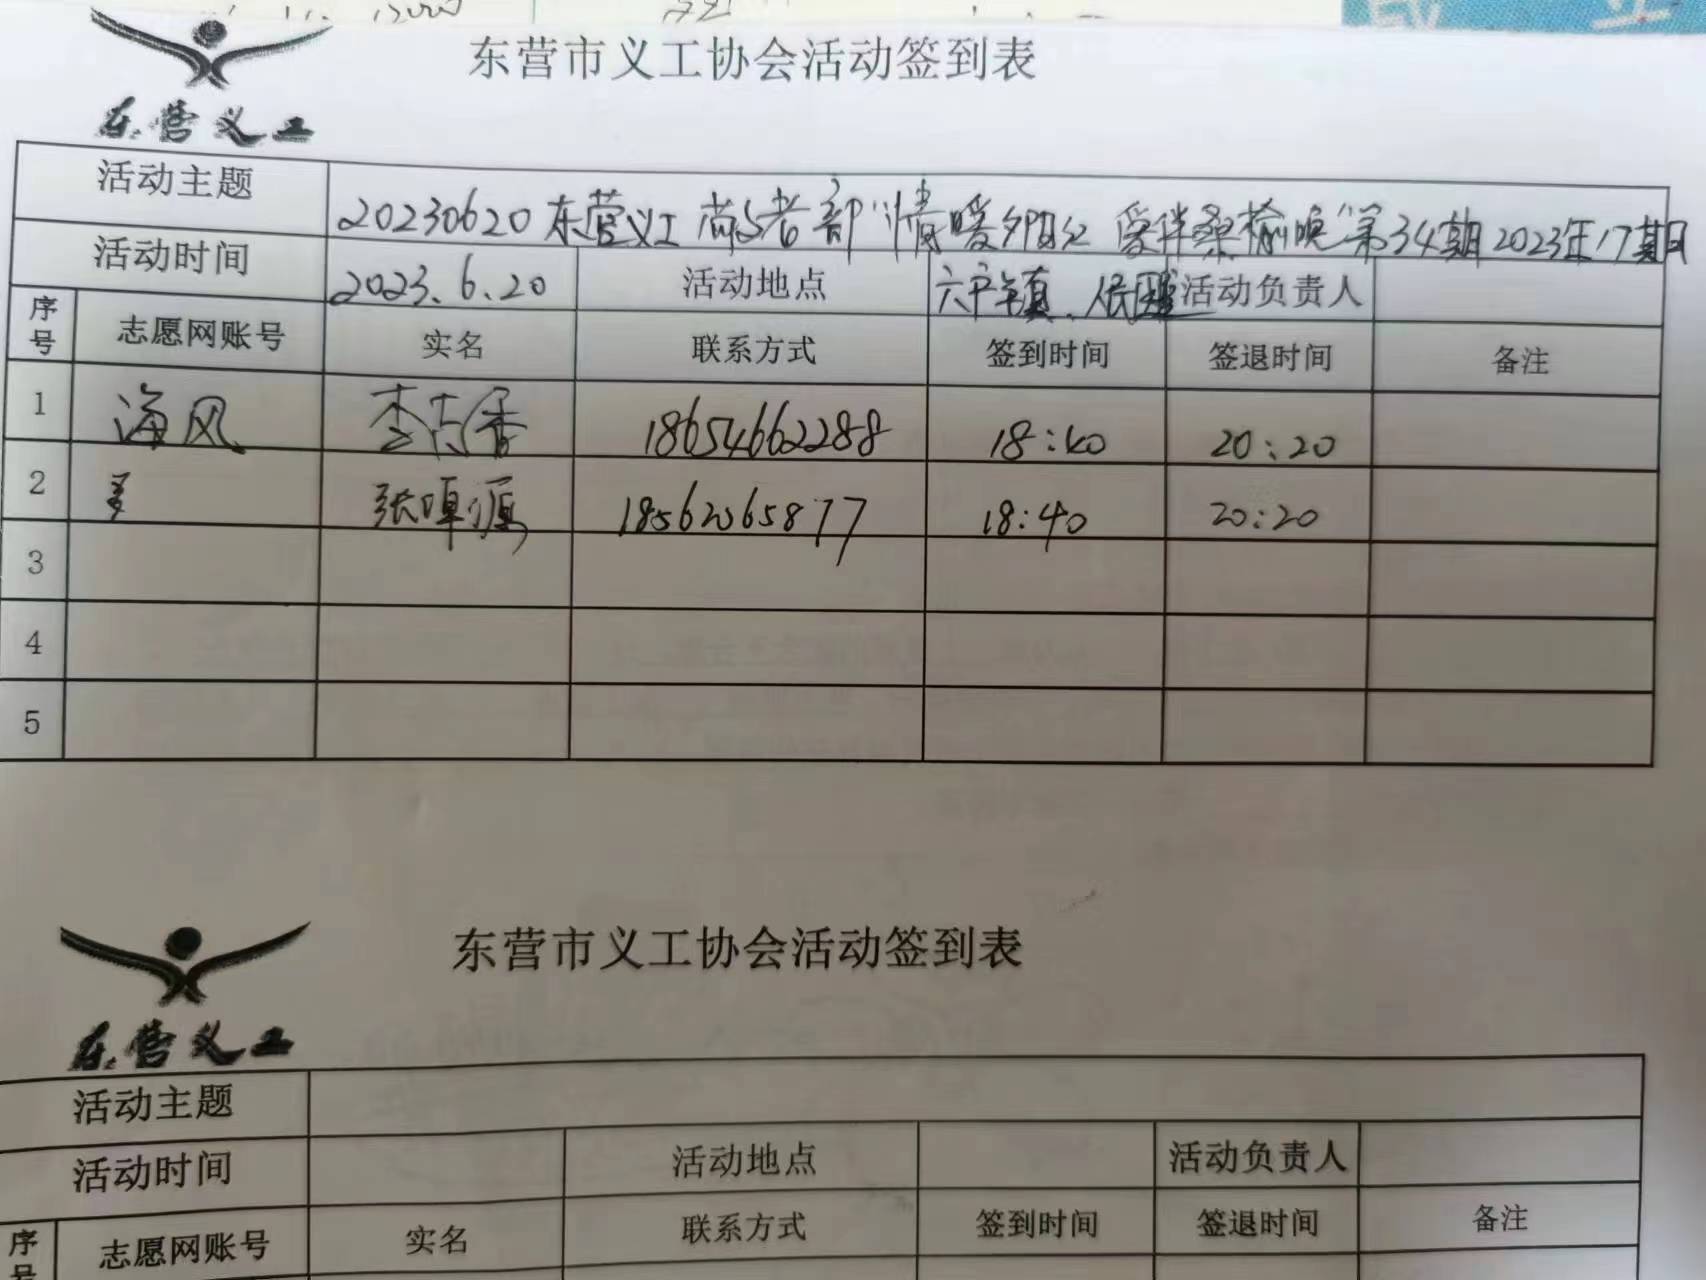 东营市义工协会活动签到表
东营义工
活动主题 20230620东营义工 部"情暖夕阳红 爱伴桑榆晚"第34期2023年17期
活动时间 2023.6.20 活动地点 六户镇、 活动负责人
序号 志愿网账号 实名 联系方式 签到时间 签退时间 备注
1 海风 李 香 18654662288 18:40 20:20
2 张 源 18562065877 18:40 20:20
3
4
5
东营市义工协会活动签到表
东营义工
活动主题
活动时间 活动地点 活动负责人
序号 志愿网账号 实名 联系方式 签到时间 签退时间 备注